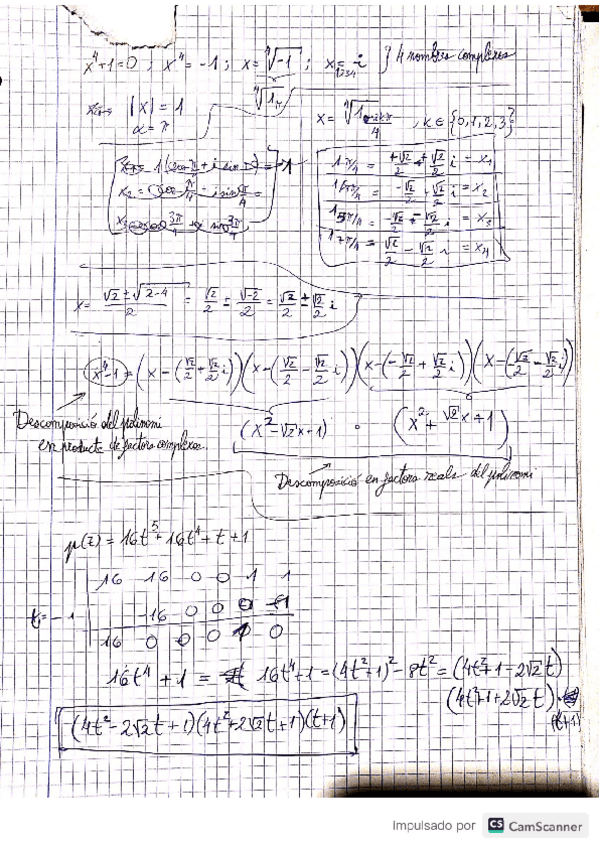 x⁴+1=0 ; x⁴=-1 ; x=⁴√-1 ; x₁₂₃₄=i } 4 nombres complexos
⁴√1π
|x|=1
α=π
x=⁴√1 4 , k∈{0,1,2,3}
1π/4 = +√2/2 + √2/2 i = x₁
-√2/2 √2/2 i = x₂
1 5π/4 = -√2/2 -√2/2 i = x₃
1 7π/4 = √2/2 - √2/2 i = x₄
x= (√2 ± √2-4)/2 = √2/2 ± √-2/2 = √2/2 ± √2/2 i
x⁴-1=(x-(√2/2+√2/2 i))(x-(√2/2-√2/2 i))(x-(-√2/2+√2/2 i))(x-(√2/2-√2/2 i))
Descomposició del polinomi
en producte de factors complexos.
(x²-√2x+1) · (x²+√2x+1)
Descomposició en factors reals del polinomi
p(z)=16t⁵+16t⁴+t+1
16 16 0 0 1 1
-1 -16 0 0 0 -1
16 0 0 0 1 0
16t⁴+1 = 16t⁴+1=(4t²+1)²-8t²=(4t²+1-2√2t)
(4t²+1+2√2t)·
(t+1)
(4t²-2√2t+1)(4t²+2√2t+1)(t+1)
Impulsado por CS CamScanner